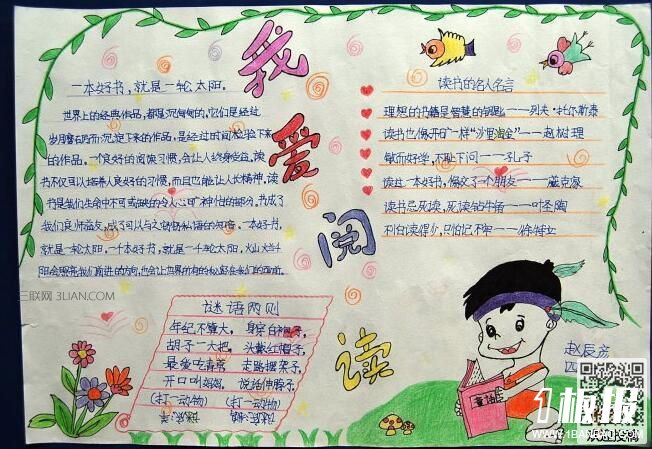 我爱阅读
一本好书，就是一轮太阳。
世界上的经典作品，都是沉甸甸的，它们是经过
岁月磨石而沉淀下来的作品，是经过时间检验下来
的作品。一个良好的阅读习惯，会让人终身受益。读
书不仅可以培养人良好的习惯，而且也能让人长精神，读
书是我们生命中不可或缺的令人心旷神怡的部分，书成了
我们良师益友，成了可以与之窃窃私语的知音。一本好书，
就是一轮太阳，一千本好书，就是一千轮太阳，
读书的名人名言
理想的书籍是智慧的钥匙——列夫·托尔斯泰
读书也像开矿一样"沙里淘金"——赵树理
敏而好学，不耻下问——孔子
读过一本好书，像交了一个朋友——臧克家
读书忌死读，死读钻牛角——叶圣陶
不怕读得少，只怕记不牢——徐特立
谜语两则
年纪不算大，
胡子一大把，头戴红帽子，
最爱吃青草 走路摆架子，
开口叫妈妈，
(打一动物) (打一动物)
童话
三联网 3LIAN.COM
1板报
WWW.1BANBAO.COM
欢迎投稿